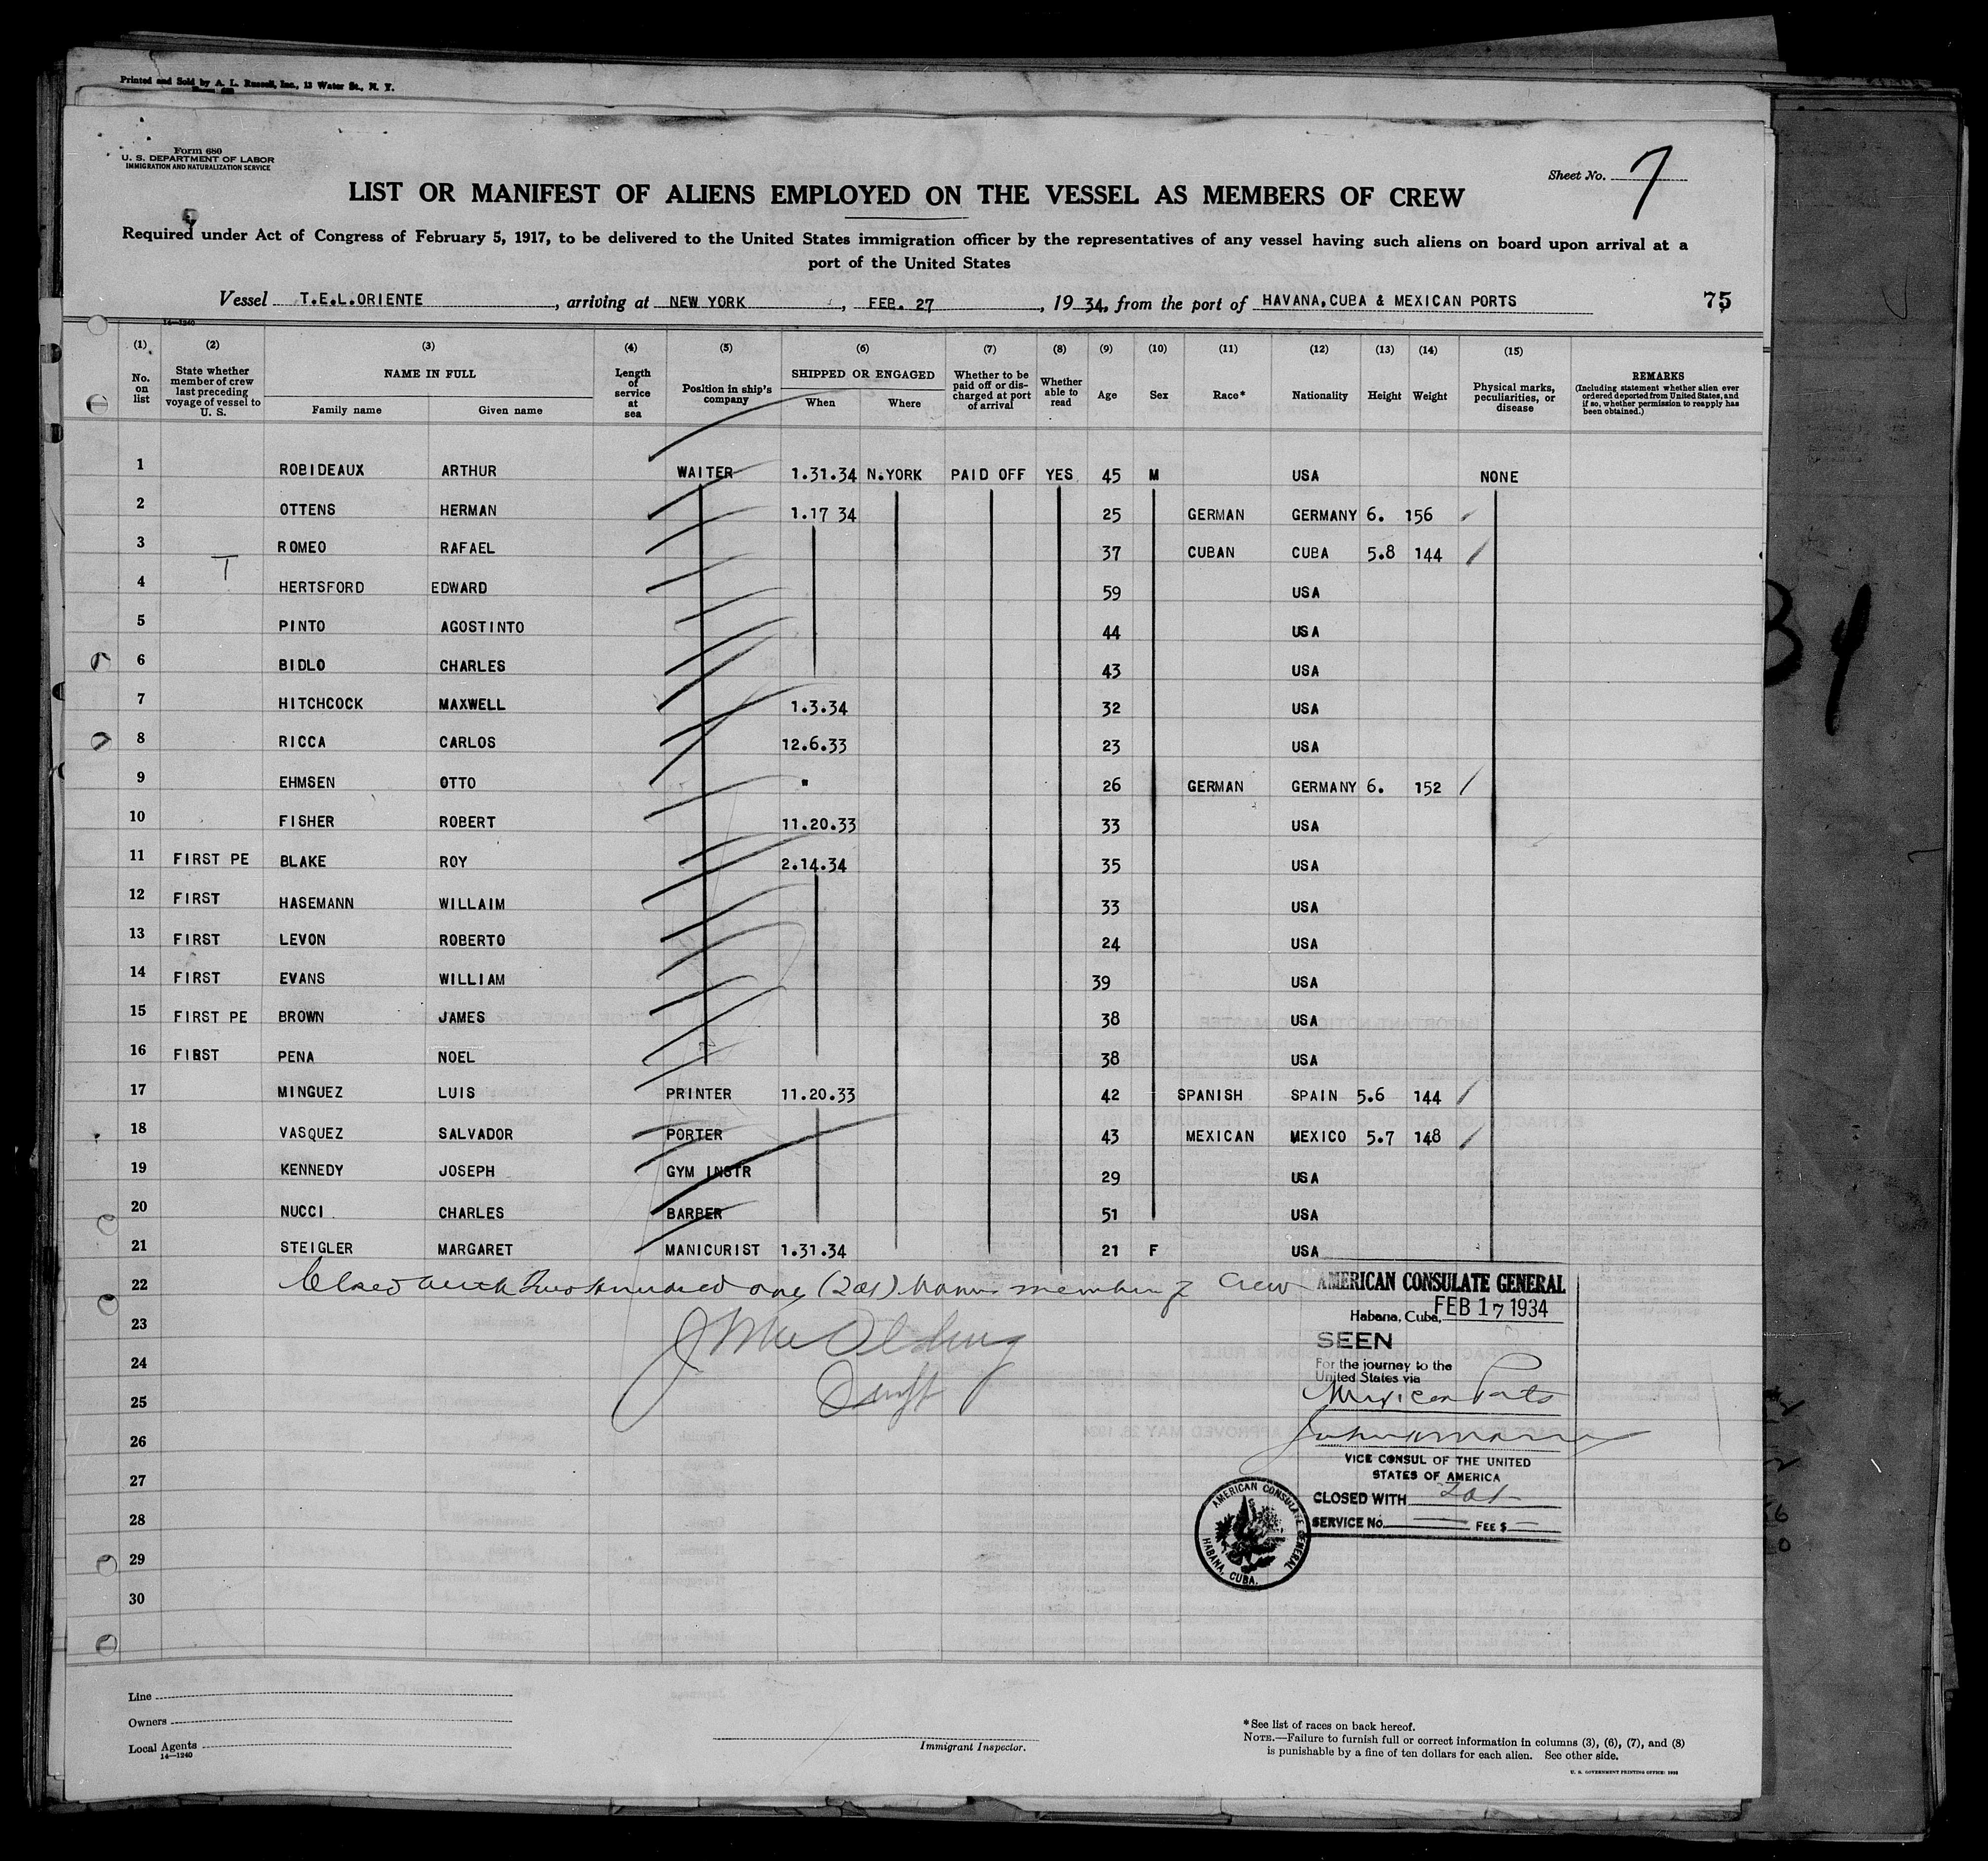 Printed and Sold by A. L. Russell, Inc., 13 Water St., N. Y.
Form 680
U. S. DEPARTMENT OF LABOR
IMMIGRATION AND NATURALIZATION SERVICE
Sheet No. 7
LIST OR MANIFEST OF ALIENS EMPLOYED ON THE VESSEL AS MEMBERS OF CREW
Required under Act of Congress of February 5, 1917, to be delivered to the United States immigration officer by the representatives of any vessel having such aliens on board upon arrival at a
port of the United States
Vessel T.E.L.ORIENTE, arriving at NEW YORK, FEB. 27, 1934, from the port of HAVANA,CUBA & MEXICAN PORTS 75
14—1240
(1) (2) (3) (4) (5) (6) (7) (8) (9) (10) (11) (12) (13) (14) (15)
No. on list State whether member of crew last preceding voyage of vessel to U. S. NAME IN FULL Family name Given name Length of service at sea Position in ship's company SHIPPED OR ENGAGED When Where Whether to be paid off or discharged at port of arrival Whether able to read Age Sex Race* Nationality Height Weight Physical marks, peculiarities, or disease REMARKS (Including statement whether alien ever ordered deported from United States, and if so, whether permission to reapply has been obtained.)
1 ROBIDEAUX ARTHUR WAITER 1.31.34 N.YORK PAID OFF YES 45 M USA NONE
2 OTTENS HERMAN 1.17 34 25 GERMAN GERMANY 6. 156
3 ROMEO RAFAEL 37 CUBAN CUBA 5.8 144
T
4 HERTSFORD EDWARD 59 USA
5 PINTO AGOSTINTO 44 USA
6 BIDLO CHARLES 43 USA
7 HITCHCOCK MAXWELL 1.3.34 32 USA
8 RICCA CARLOS 12.6.33 23 USA
9 EHMSEN OTTO " 26 GERMAN GERMANY 6. 152
10 FISHER ROBERT 11.20.33 33 USA
11 FIRST PE BLAKE ROY 2.14.34 35 USA
12 FIRST HASEMANN WILLAIM 33 USA
13 FIRST LEVON ROBERTO 24 USA
14 FIRST EVANS WILLIAM 39 USA
15 FIRST PE BROWN JAMES 38 USA
16 FIRST PENA NOEL 38 USA
17 MINGUEZ LUIS PRINTER 11.20.33 42 SPANISH SPAIN 5.6 144
18 VASQUEZ SALVADOR PORTER 43 MEXICAN MEXICO 5.7 148
19 KENNEDY JOSEPH GYM INSTR 29 USA
20 NUCCI CHARLES BARBER 51 USA
21 STEIGLER MARGARET MANICURIST 1.31.34 21 F USA
22 Closed with Two hundred one (201) names members of Crew
23
24
25
26
27
28
29
30
AMERICAN CONSULATE GENERAL
Habana, Cuba, FEB 17 1934
SEEN
For the journey to the
United States via
Mexican Ports
VICE CONSUL OF THE UNITED
STATES OF AMERICA
CLOSED WITH 201
SERVICE No. FEE $
AMERICAN CONSULATE GENERAL HABANA, CUBA.
34
Line
Owners
Local Agents
14—1240
Immigrant Inspector.
*See list of races on back hereof.
NOTE.—Failure to furnish full or correct information in columns (3), (6), (7), and (8)
is punishable by a fine of ten dollars for each alien. See other side.